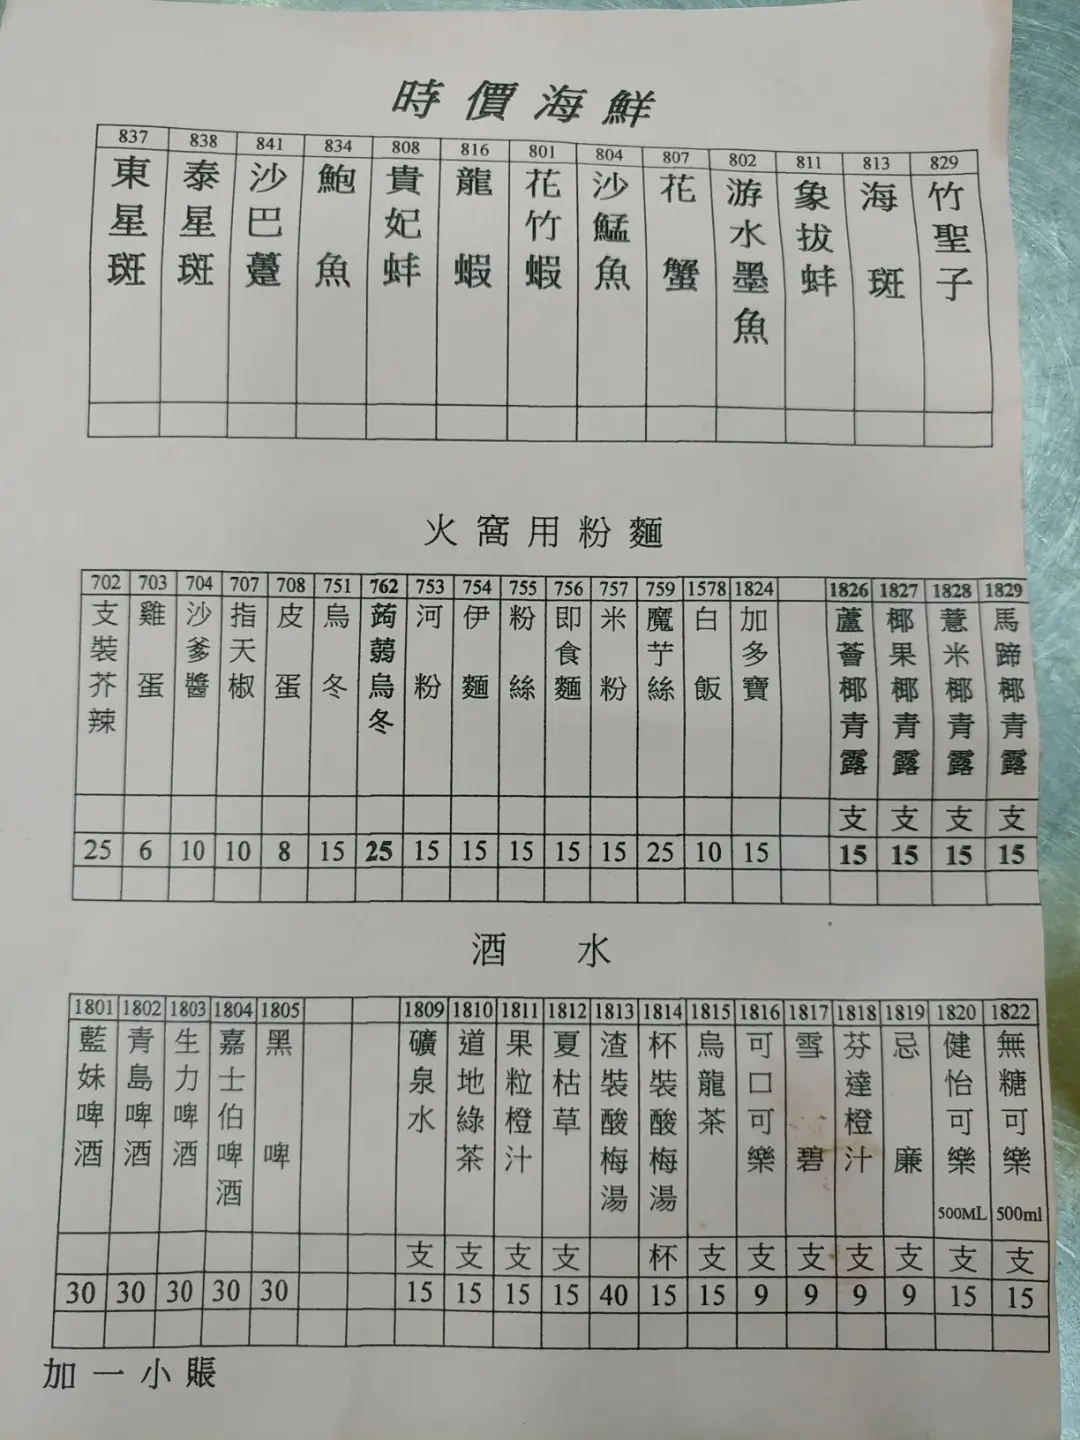 時價海鮮
837 838 841 834 808 816 801 804 807 802 811 813 829
東星斑 泰星斑 沙巴躉 鮑魚 貴妃蚌 龍蝦 花竹蝦 沙鯭魚 花蟹 游水墨魚 象拔蚌 海斑 竹聖子
火窩用粉麵
702 703 704 707 708 751 762 753 754 755 756 757 759 1578 1824 1826 1827 1828 1829
支裝芥辣 雞蛋 沙爹醬 指天椒 皮蛋 烏冬 蒟蒻烏冬 河粉 伊麵 粉絲 即食麵 米粉 魔芋絲 白飯 加多寶 蘆薈椰青露 椰果椰青露 薏米椰青露 馬蹄椰青露
支 支 支 支
25 6 10 10 8 15 25 15 15 15 15 15 25 10 15 15 15 15 15
酒水
1801 1802 1803 1804 1805 1809 1810 1811 1812 1813 1814 1815 1816 1817 1818 1819 1820 1822
藍妹啤酒 青島啤酒 生力啤酒 嘉士伯啤酒 黑啤 礦泉水 道地綠茶 果粒橙汁 夏枯草 渣裝酸梅湯 杯裝酸梅湯 烏龍茶 可口可樂 雪碧 芬達橙汁 忌廉 健怡可樂 500ML 無糖可樂 500ml
支 支 支 支 杯 支 支 支 支 支 支 支
30 30 30 30 30 15 15 15 15 40 15 15 9 9 9 9 15 15
加一小賬